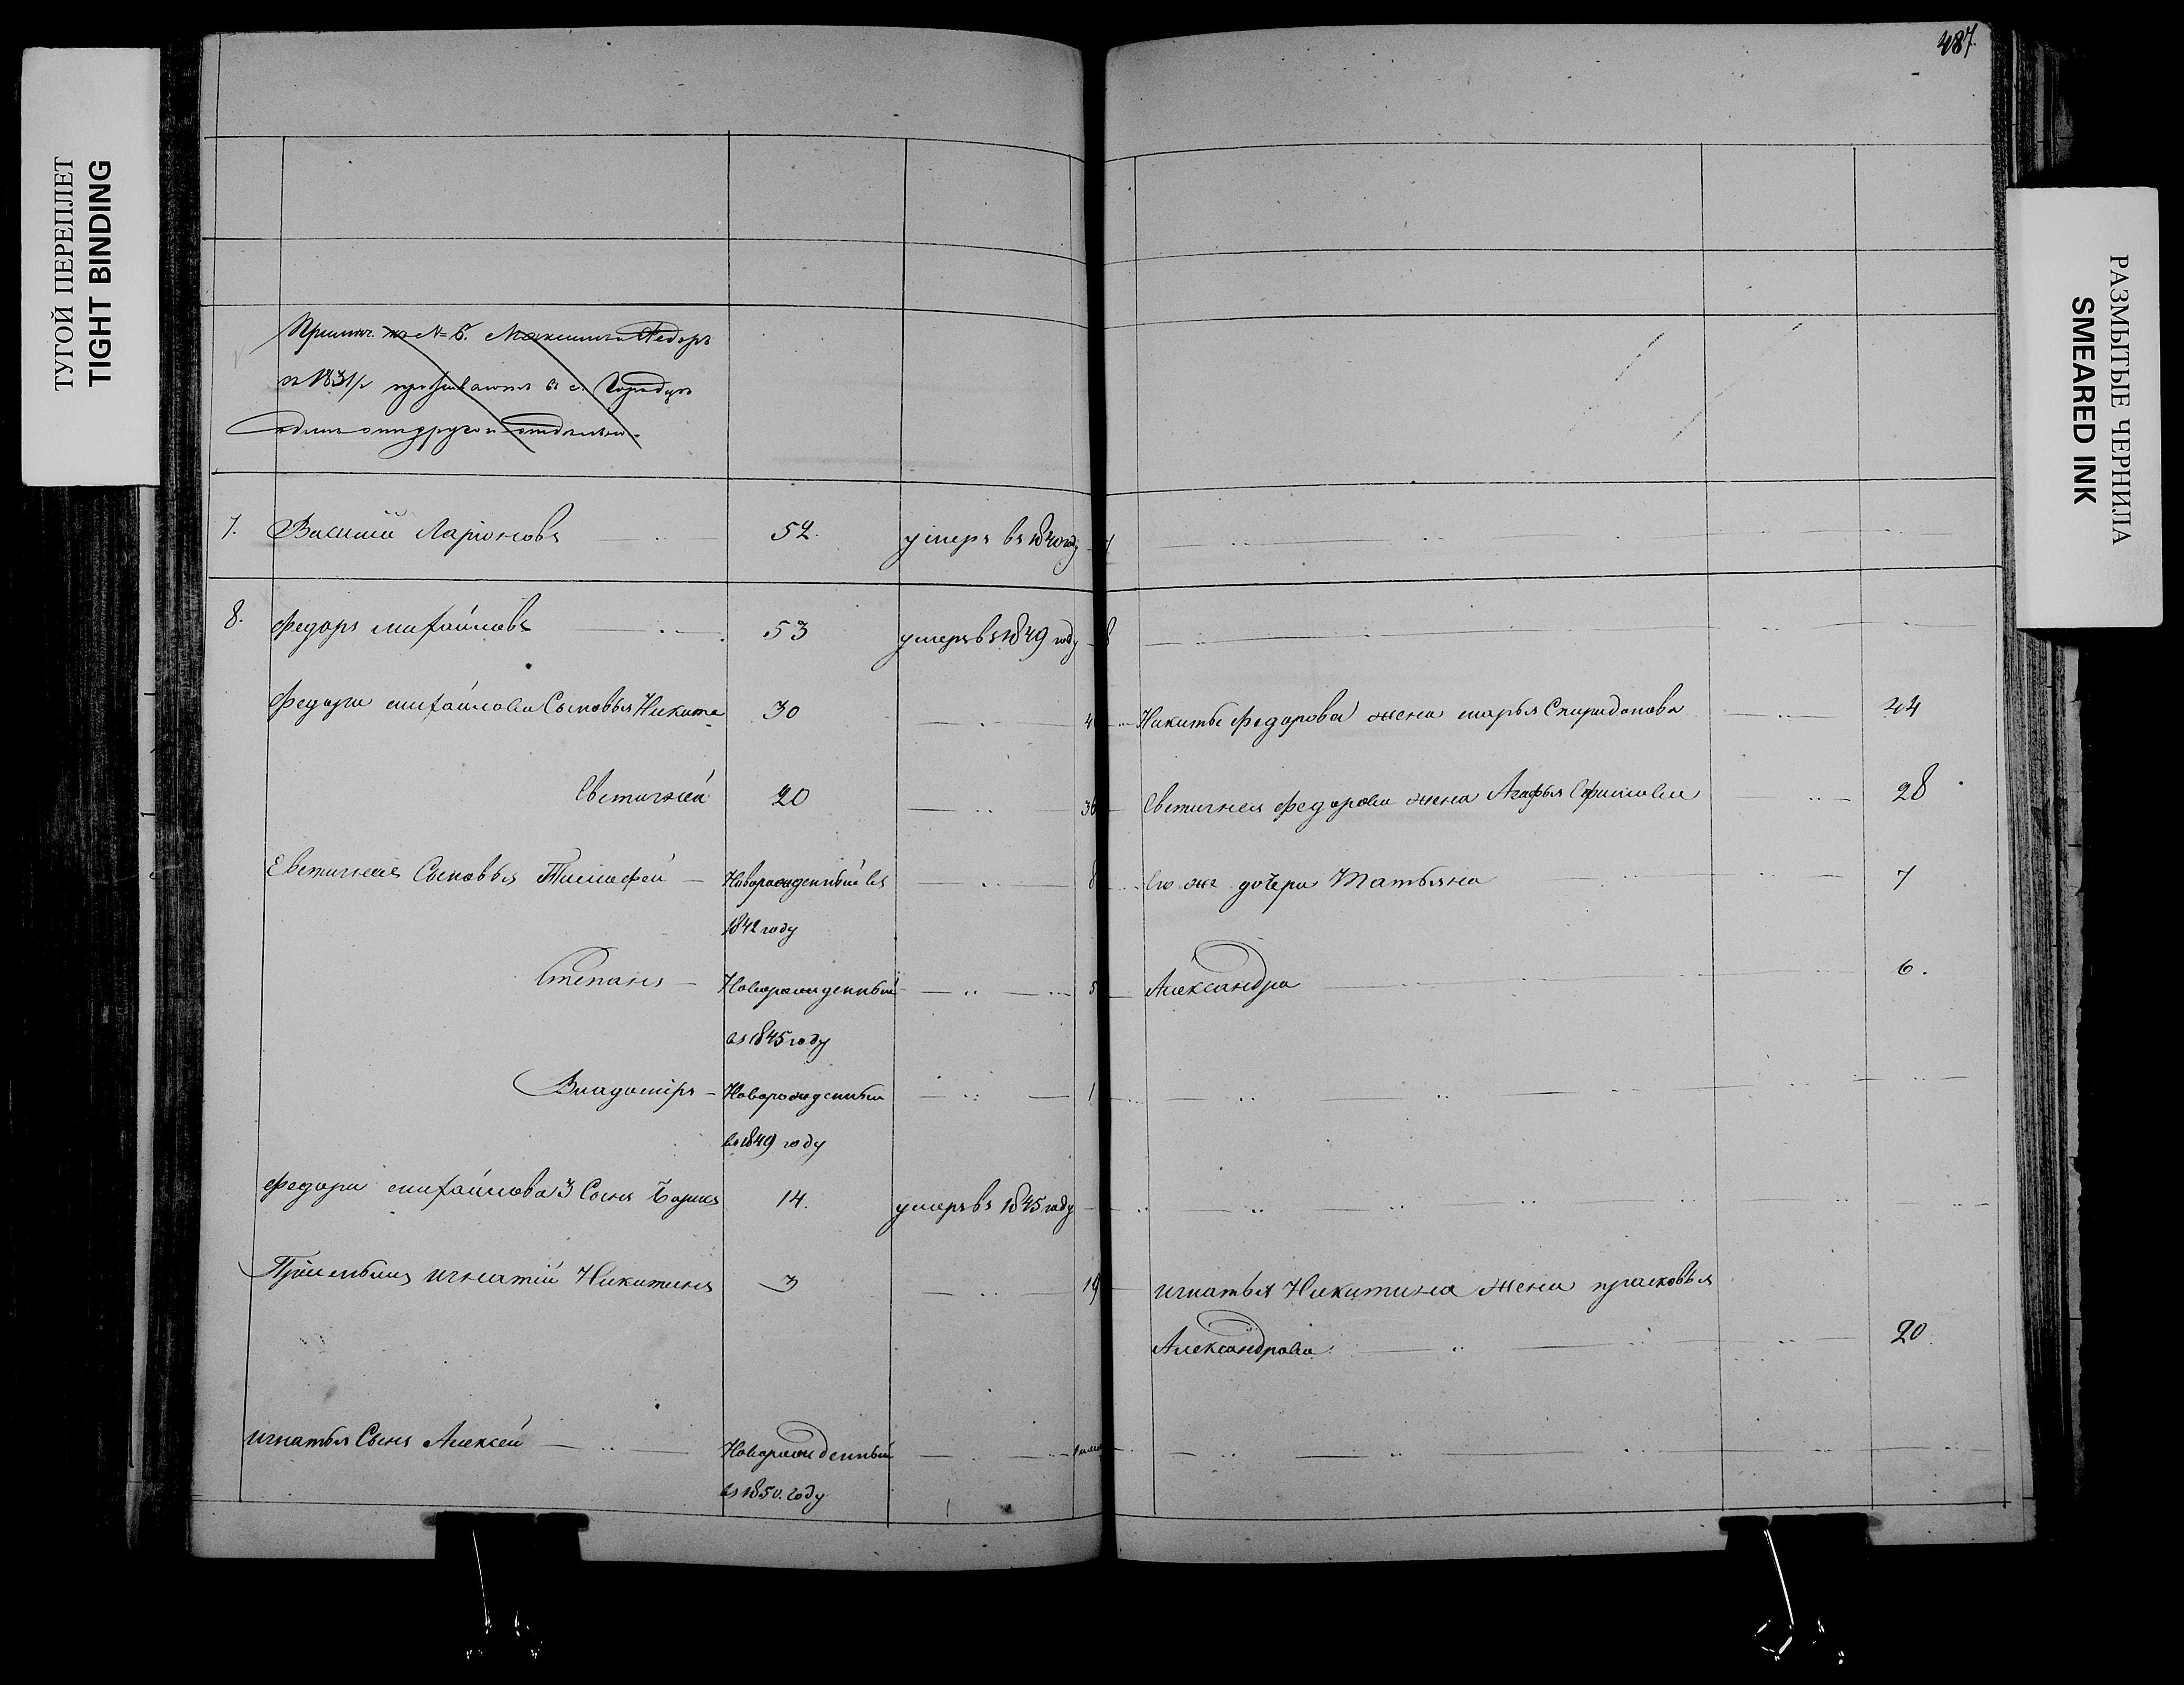 487
ТУГОЙ ПЕРЕПЛЕТ
TIGHT BINDING
РАЗМЫТЫЕ ЧЕРНИЛА
SMEARED INK
Примѣч. къ № 6. Федоръ
1831 г проживаютъ въ с. Городцѣ
одинъ отъ другого отдѣльно
7. Василий Ларионовъ 52. умеръ въ 1840 году 7
8. Федоръ михайловъ 53 умеръ въ 1849 году 8
Федора михайлова Сыновья Никита 30 Никиты федорова жена марья Спиридонова 44
Евтигней 20 36 Евтигнея федорова жена Агафья Ефимова 28
Евтигнея Сыновья Тимофей Новорожденный въ 8 Его же дочери Татьяна 7
1842 году
Степанъ Новорожденный 5 Александра 6.
въ 1845 году
Владимiръ Новорожденный 1
въ 1849 году
Федора михайлова 3 Сынъ Борисъ 14. умеръ въ 1845 году
Прiемышъ игнатiй Никитинъ 3 19 игнатья Никитина жена прасковья
Александрова 20
игнатья Сынъ Алексей Новорожденный
въ 1850. году